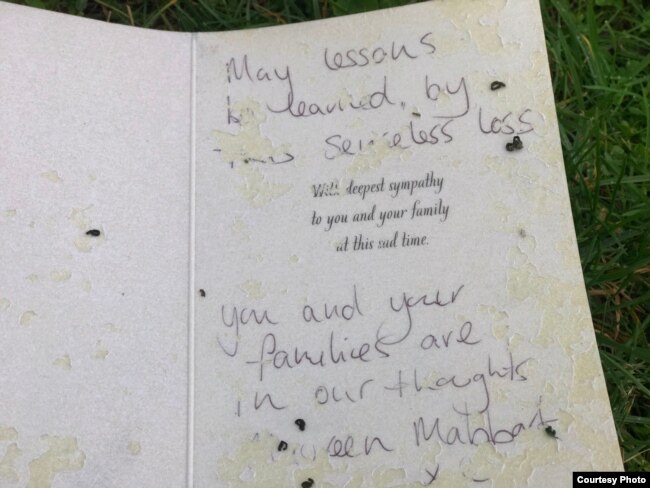 May lessons
be learned, by
this senseless loss
With deepest sympathy
to you and your family
at this sad time.
you and your
families are
in our thoughts
Mabbart
x
Courtesy Photo